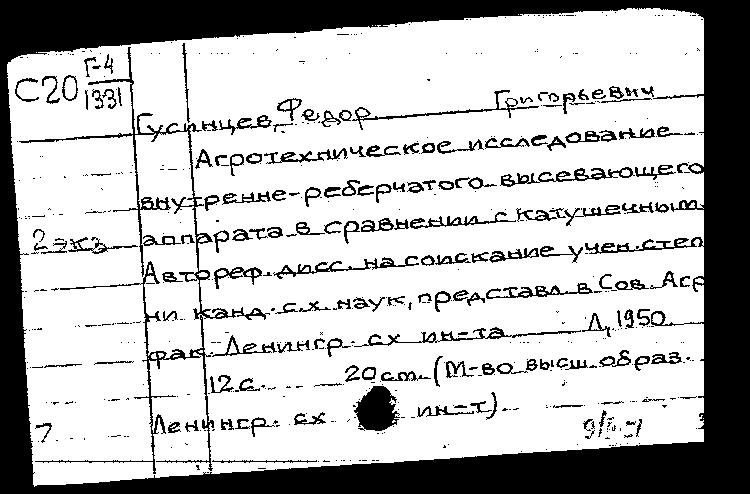 С20 Г-4
1331
Гусинцев, Федор Григорьевич
Агротехническое исследование
внутренне-реберчатого высевающего
2 экз аппарата в сравнении с катушечным.
Автореф. дисс. на соискание учен. степ
ни канд. с.х. наук, представл. в Сов. Агр
фак. Ленингр. сх ин-та Л, 1950.
12 с. 20 cm. (М-во высш. образ.
7 Ленингр. сх ин-т)